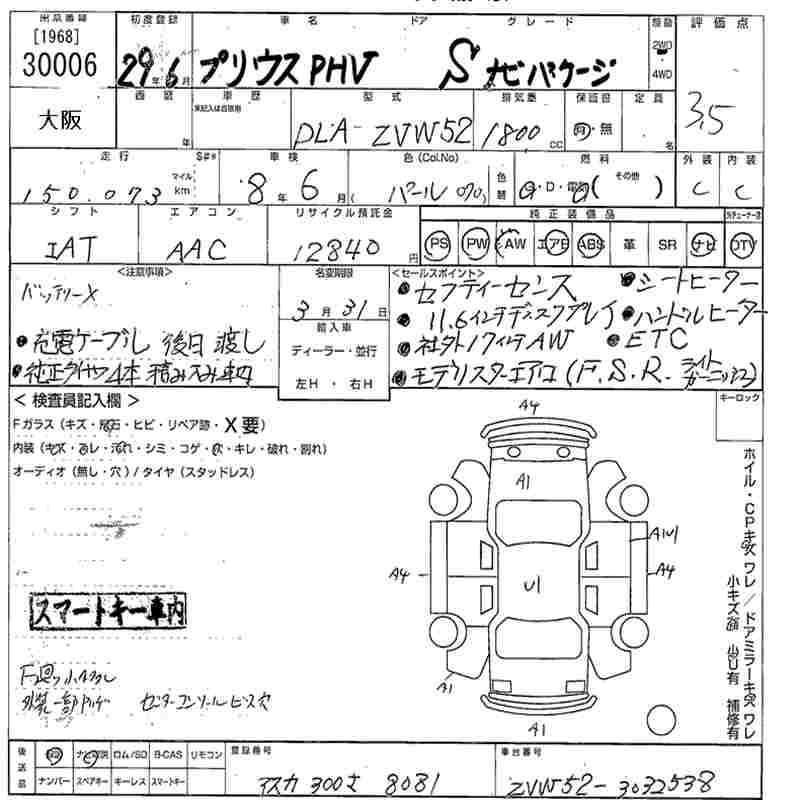 出品番号 初度登録 車名 ドア グレード 駆動 評価点
[1968]
30006 29年6月 プリウスPHV Sナビパケージ 2WD 4WD
大阪 車歴 型式 排気量 保証書 定員 3.5
未記入は自家用
年 DLA-ZVW52 1800CC 有・無 名
走行 マイル km S#* 車検 色(Col.No) 色替 燃料 外装 内装
150.073 8年6月 パール070 G・D・電気 (その他) C C
シフト エアコン リサイクル預託金 純正装備品
IAT AAC 12840円 PS PW AW エアB ABS 革 SR ナビ TV
<注意事項> 名変期限 <セールスポイント>
バッテリーX 3月31日 ・セフティーセンス ・シートヒーター
・11.6インチディスクプレイ ・ハンドルヒーター
・充電ケーブル 後日渡し 輸入車 ・社外17インチAW ・ETC
・純正タイヤ4本積み込み車内 ディーラー・並行 ・モデリスターエアロ(F.S.R.ライトガーニッシュ)
左H・右H
<検査員記入欄> キーロック
Fガラス(キズ・飛石・ヒビ・リペア跡・X要)
内装(キズ・スレ・汚れ・シミ・コゲ・穴・キレ・破れ・割れ)
オーディオ(無し・穴)/タイヤ(スタッドレス)
A4
A1
A1U1
A4 U1 A4
A1
A1
スマートキー車内
F廻り小キズ
外装一部
センターコンソールビス穴
ホイル・CPキズ ワレ/ドアミラーキズ ワレ
小キズ有 小U有 補修有
後送品 ロム/SD B-CAS リモコン 登録番号 車台番号
ナンバー スペアキー キーレス スマートキー アスカ 300 8081 ZVW52-3032538